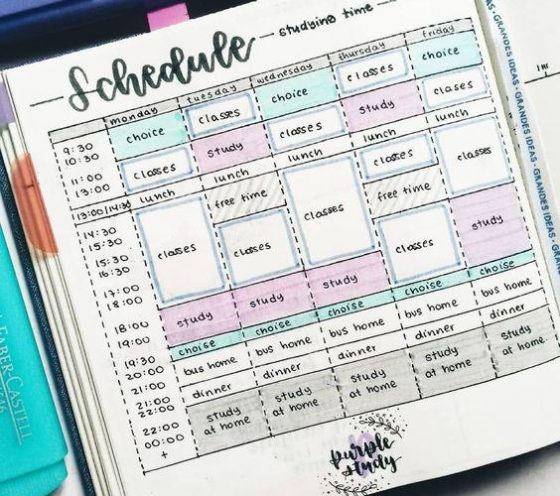 Schedule
studying time
monday tuesday wednesday thursday friday
9:30
10:30
choice classes choice classes choice
11:00
13:00
classes study classes study classes
13:00/14:30 lunch lunch lunch lunch lunch
14:30
15:30
classes free time classes classes classes
15:30
16:30
classes free time
17:00
18:00
classes study
18:00
19:00
study study study
choise choise choise choise choise
19:30
20:00
bus home bus home bus home bus home bus home
21:00
21:00
dinner dinner dinner dinner dinner
22:00
22:00
00:00
+
study at home study at home study at home study at home study at home
purple
study
FABER-CASTELL
GRANDES IDEAS · GRANDES IDEAS · GRANDES IDEAS